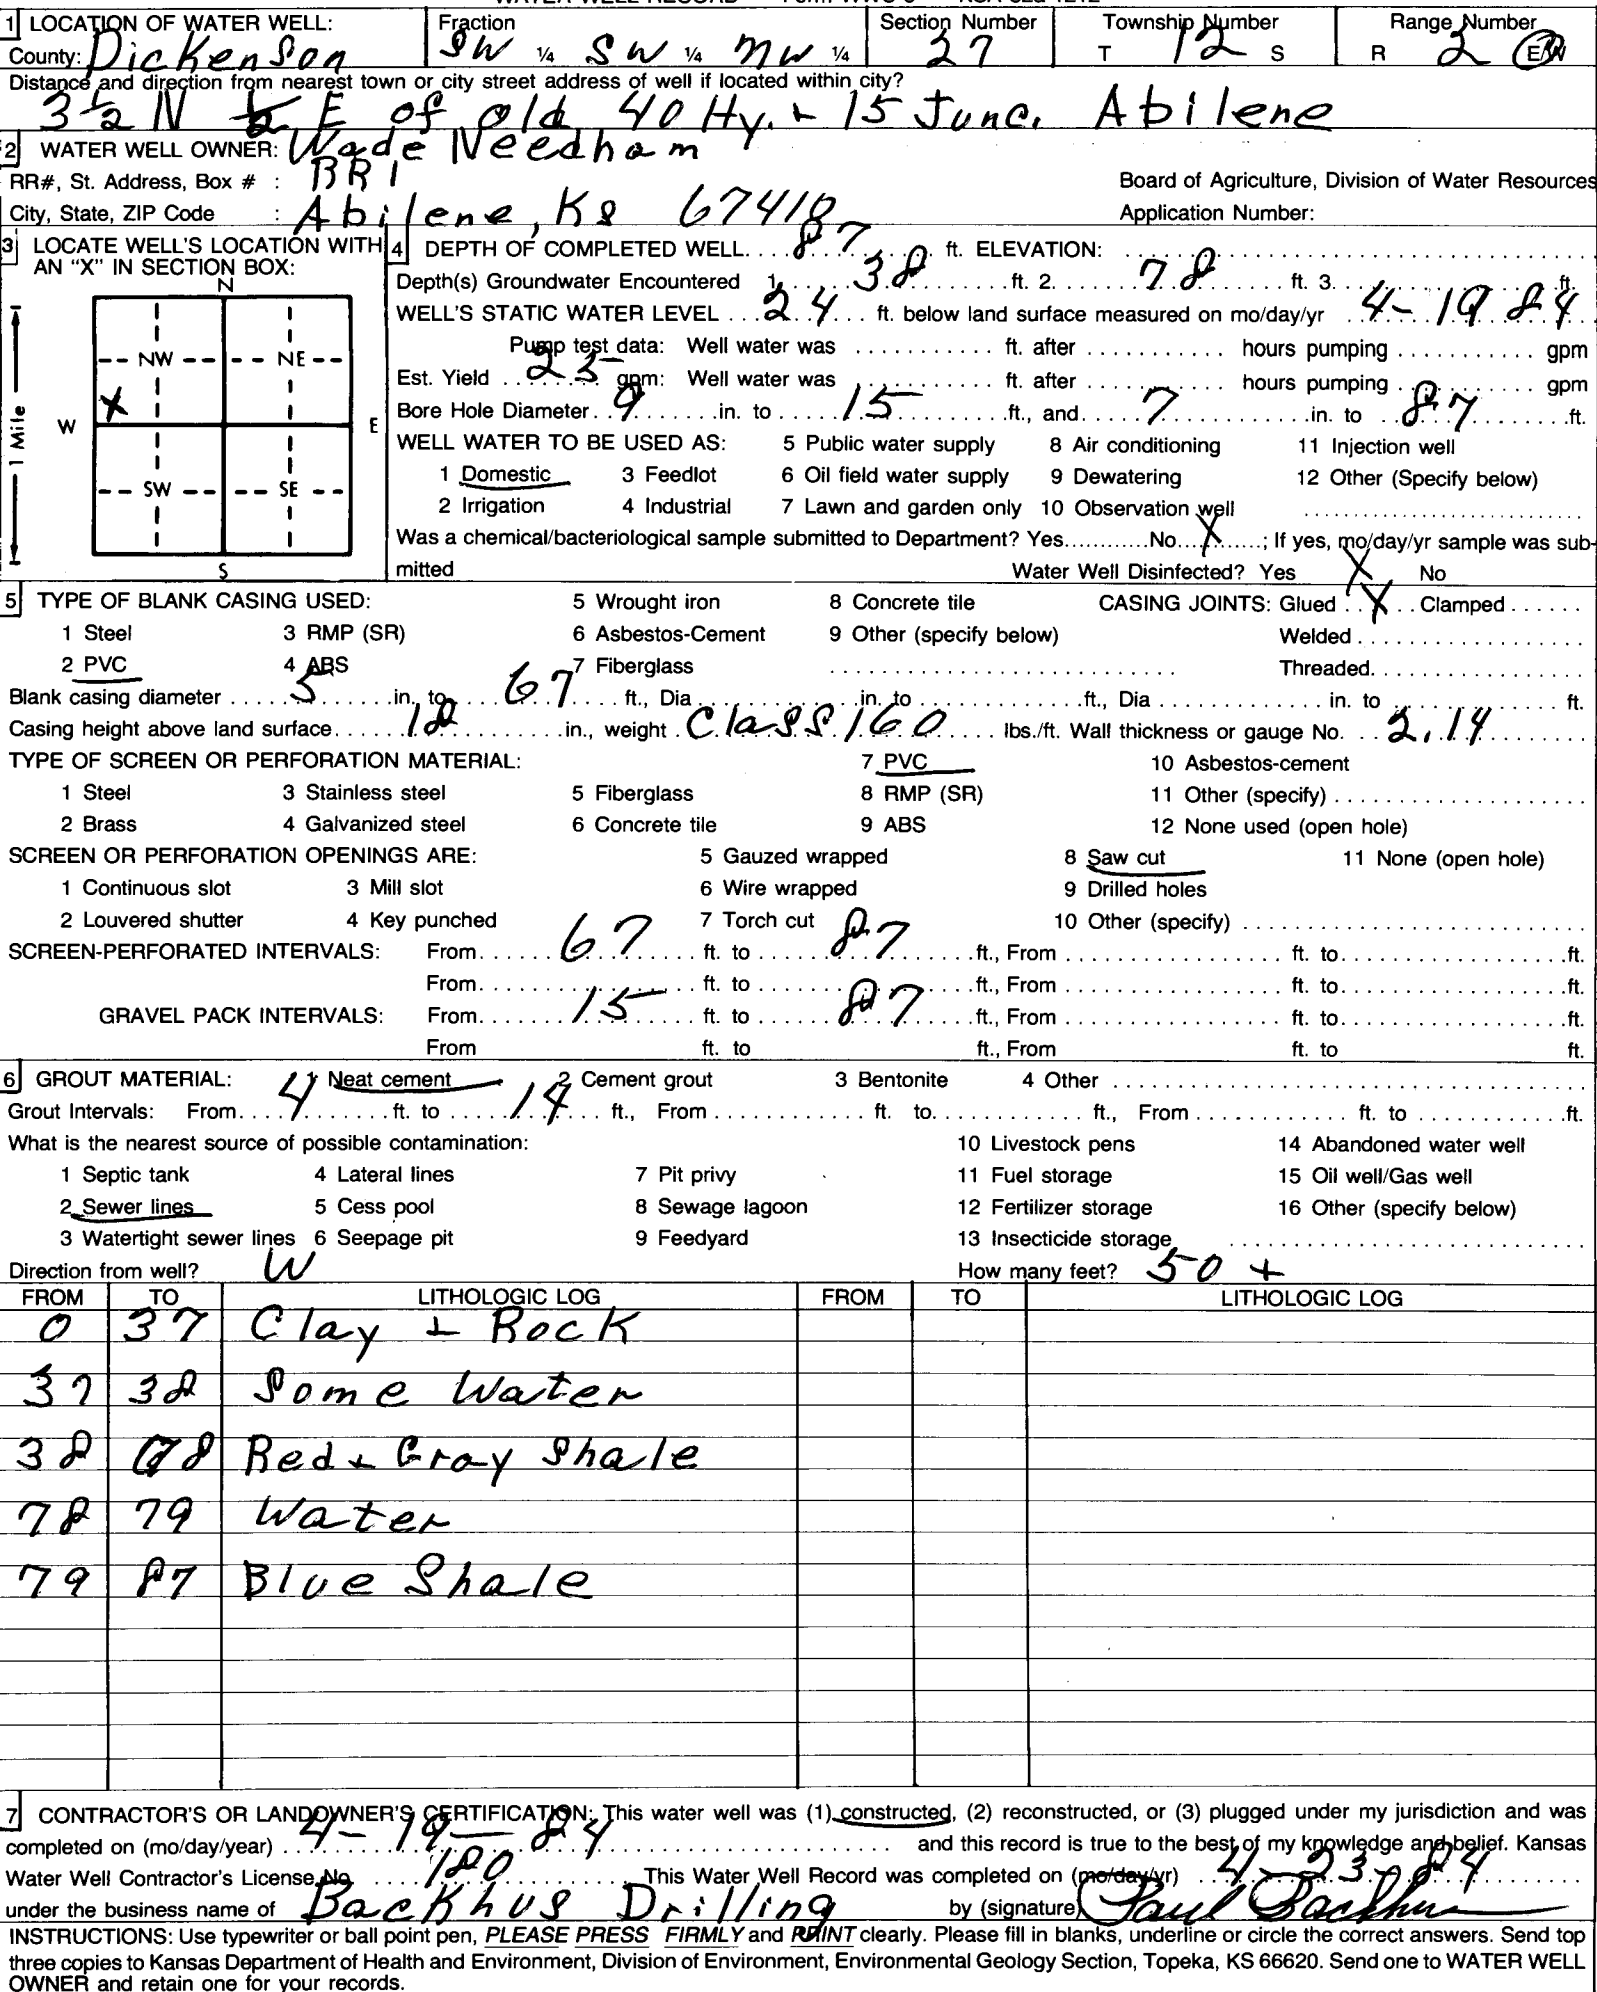 1 LOCATION OF WATER WELL: Fraction Section Number Township Number Range Number
County: Dickenson SW ¼ SW ¼ NW ¼ 27 T 12 S R 2 E/W
Distance and direction from nearest town or city street address of well if located within city?
3½ N ½ E of old 40 Hy. + 15 Junc. Abilene
2 WATER WELL OWNER: Wade Needham
RR#, St. Address, Box # : RR1 Board of Agriculture, Division of Water Resources
City, State, ZIP Code : Abilene, Ks 67410 Application Number:
3 LOCATE WELL'S LOCATION WITH AN "X" IN SECTION BOX:
N
NW NE
X
W E
1 Mile
SW SE
S
4 DEPTH OF COMPLETED WELL.... 87 ft. ELEVATION:
Depth(s) Groundwater Encountered 1. 38 ft. 2. 78 ft. 3. ft.
WELL'S STATIC WATER LEVEL ... 24 ... ft. below land surface measured on mo/day/yr 4-19 84
Pump test data: Well water was ........... ft. after ........... hours pumping .......... gpm
Est. Yield 25 gpm: Well water was ........... ft. after ........... hours pumping .......... gpm
Bore Hole Diameter.. 9 in. to 15 ft., and 7 in. to 87 ft.
WELL WATER TO BE USED AS: 5 Public water supply 8 Air conditioning 11 Injection well
1 Domestic 3 Feedlot 6 Oil field water supply 9 Dewatering 12 Other (Specify below)
2 Irrigation 4 Industrial 7 Lawn and garden only 10 Observation well
Was a chemical/bacteriological sample submitted to Department? Yes...........No... X ......; If yes, mo/day/yr sample was sub-
mitted Water Well Disinfected? Yes X No
5 TYPE OF BLANK CASING USED: 5 Wrought iron 8 Concrete tile CASING JOINTS: Glued . . X . . Clamped ......
1 Steel 3 RMP (SR) 6 Asbestos-Cement 9 Other (specify below) Welded
2 PVC 4 ABS 7 Fiberglass Threaded.
Blank casing diameter 5 in. to 67 ft., Dia in. to ft., Dia in. to ft.
Casing height above land surface 18 in., weight Class 160 lbs./ft. Wall thickness or gauge No. 2.14
TYPE OF SCREEN OR PERFORATION MATERIAL: 7 PVC 10 Asbestos-cement
1 Steel 3 Stainless steel 5 Fiberglass 8 RMP (SR) 11 Other (specify)
2 Brass 4 Galvanized steel 6 Concrete tile 9 ABS 12 None used (open hole)
SCREEN OR PERFORATION OPENINGS ARE: 5 Gauzed wrapped 8 Saw cut 11 None (open hole)
1 Continuous slot 3 Mill slot 6 Wire wrapped 9 Drilled holes
2 Louvered shutter 4 Key punched 7 Torch cut 10 Other (specify)
SCREEN-PERFORATED INTERVALS: From 67 ft. to 87 ft., From ft. to ft.
From ft. to ft., From ft. to ft.
GRAVEL PACK INTERVALS: From 15 ft. to 87 ft., From ft. to ft.
From ft. to ft., From ft. to ft.
6 GROUT MATERIAL: 1 Neat cement 2 Cement grout 3 Bentonite 4 Other
Grout Intervals: From 4 ft. to 14 ft., From ft. to ft., From ft. to ft.
What is the nearest source of possible contamination: 10 Livestock pens 14 Abandoned water well
1 Septic tank 4 Lateral lines 7 Pit privy 11 Fuel storage 15 Oil well/Gas well
2 Sewer lines 5 Cess pool 8 Sewage lagoon 12 Fertilizer storage 16 Other (specify below)
3 Watertight sewer lines 6 Seepage pit 9 Feedyard 13 Insecticide storage
Direction from well? W How many feet? 50 +
FROM TO LITHOLOGIC LOG FROM TO LITHOLOGIC LOG
0 37 Clay + Rock
37 38 Some Water
38 78 Red + Gray Shale
78 79 Water
79 87 Blue Shale
7 CONTRACTOR'S OR LANDOWNER'S CERTIFICATION: This water well was (1) constructed, (2) reconstructed, or (3) plugged under my jurisdiction and was
completed on (mo/day/year) 4-19-84 and this record is true to the best of my knowledge and belief. Kansas
Water Well Contractor's License No. 180 This Water Well Record was completed on (mo/day/yr) 4-23-84
under the business name of Backhus Drilling by (signature) Paul Backhus
INSTRUCTIONS: Use typewriter or ball point pen, PLEASE PRESS FIRMLY and PRINT clearly. Please fill in blanks, underline or circle the correct answers. Send top
three copies to Kansas Department of Health and Environment, Division of Environment, Environmental Geology Section, Topeka, KS 66620. Send one to WATER WELL
OWNER and retain one for your records.